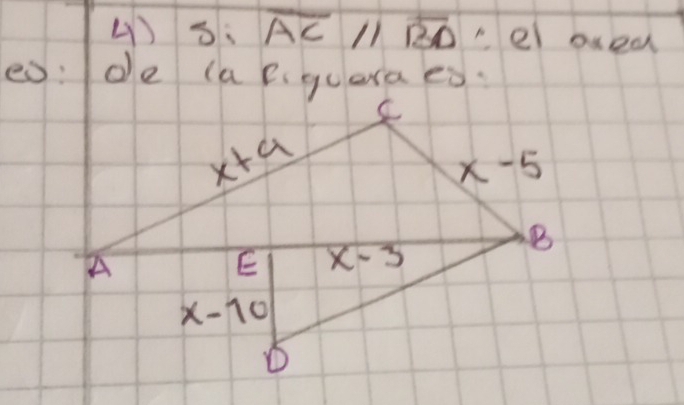 4) Si AC // BD : el area
es: de la figuera es:
C
x+9
x-5
A
E
x-3
B
x-10
D